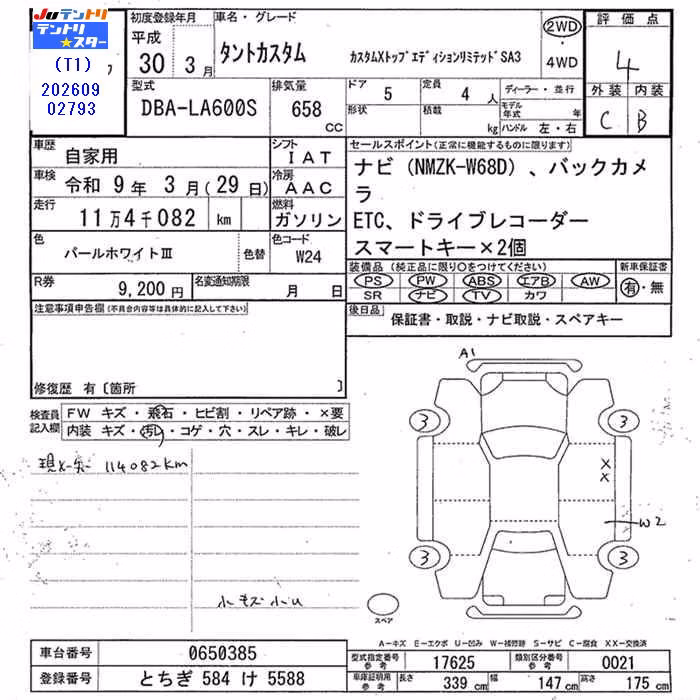 JUテントリ
テントリ★スター
(T1)
202609
02793
初度登録年月
平成
30 3月
車名・グレード
タントカスタム カスタムXトップエディションリミテッドSA3
2WD
・
4WD
評価点
4
外装 内装
C B
型式
DBA-LA600S
排気量
658
CC
ドア 5
形状
定員 4 人
積載 kg
ディーラー・並行
モデル年式 年
ハンドル 左・右
車歴 自家用
シフト
IAT
車検 令和 9年 3月(29日)
冷房
AAC
走行 11万4千082 km
燃料
ガソリン
色
パールホワイトⅢ
色替
色コード
W24
R券
9,200円
名変通知期限
月 日
セールスポイント(正常に機能するものに限ります)
ナビ(NMZK-W68D)、バックカメ
ラ
ETC、ドライブレコーダー
スマートキー×2個
装備品(純正品に限り○をつけてください)
PS PW ABS エアB AW
SR ナビ TV カワ
新車保証書
有・無
後日品
保証書・取説・ナビ取説・スペアキー
注意事項申告欄(不具合内容等は具体的に記入して下さい)
修復歴 有〔箇所 〕
検査員
記入欄
FW キズ・飛石・ヒビ割・リペア跡・×要
内装 キズ・汚れ・コゲ・穴・スレ・キレ・破レ
現メーター 114082km
小キズ小U
A1
3 3
X
X
W2
3 3
スペア
A-キズ E-エクボ U-凹み W-補修跡 S-サビ C-腐食 XX-交換済
車台番号 0650385
登録番号 とちぎ 584 け 5588
型式指定番号
参考
17625
類別区分番号
参考
0021
車庫証明
参考
長さ 339 cm 幅 147 cm 高さ 175 cm